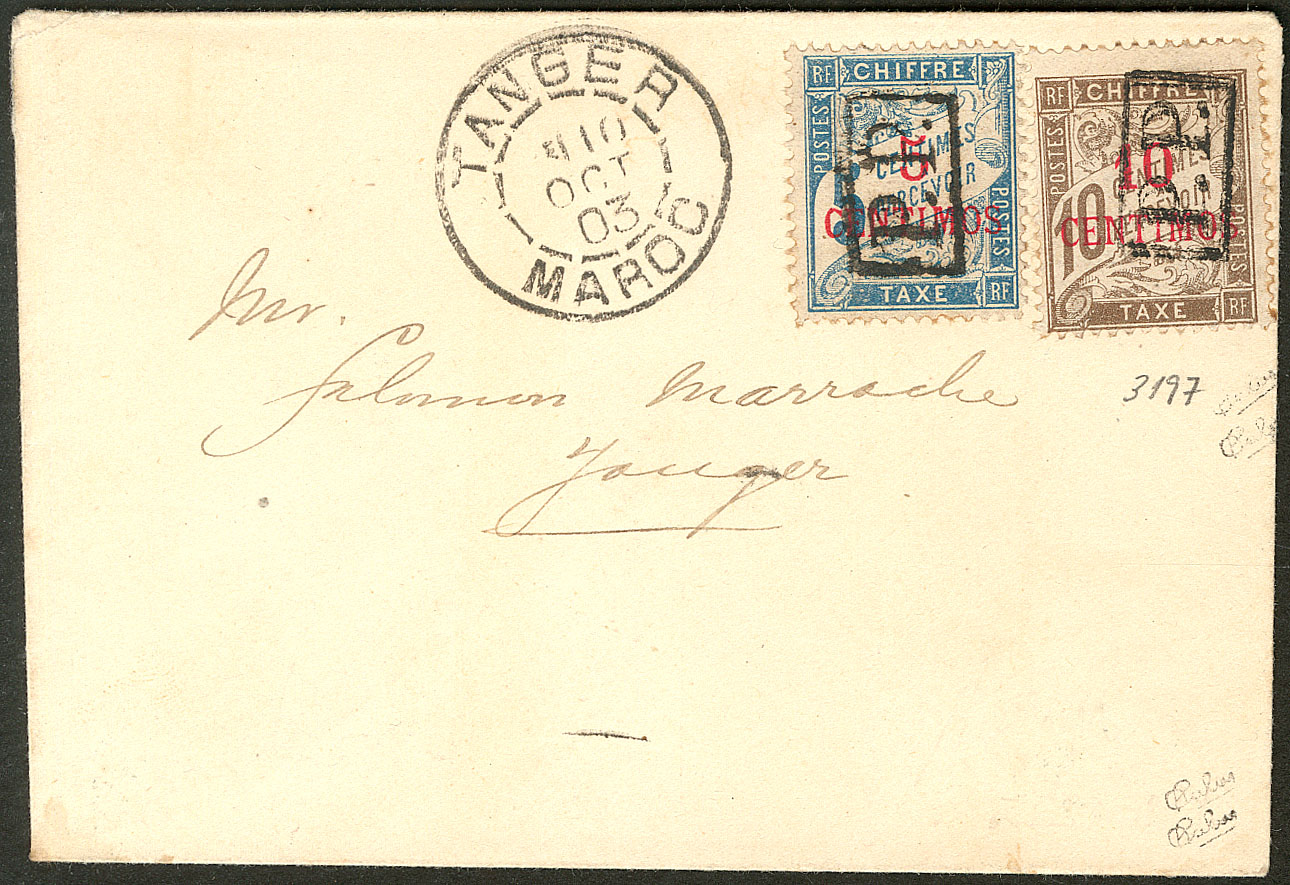 TANGER
10
OCT
03
MAROC
RF CHIFFRE
POSTES
5
CENTIMES
PERCEVOIR
5
CENTIMOS
P.P.
POSTES
TAXE RF
RF CHIFFRE
POSTES
10
CENTIMES
10
CENTIMOS
P.P.
POSTES
TAXE RF
Mr.
Salomon Marrache
3197
Tanger